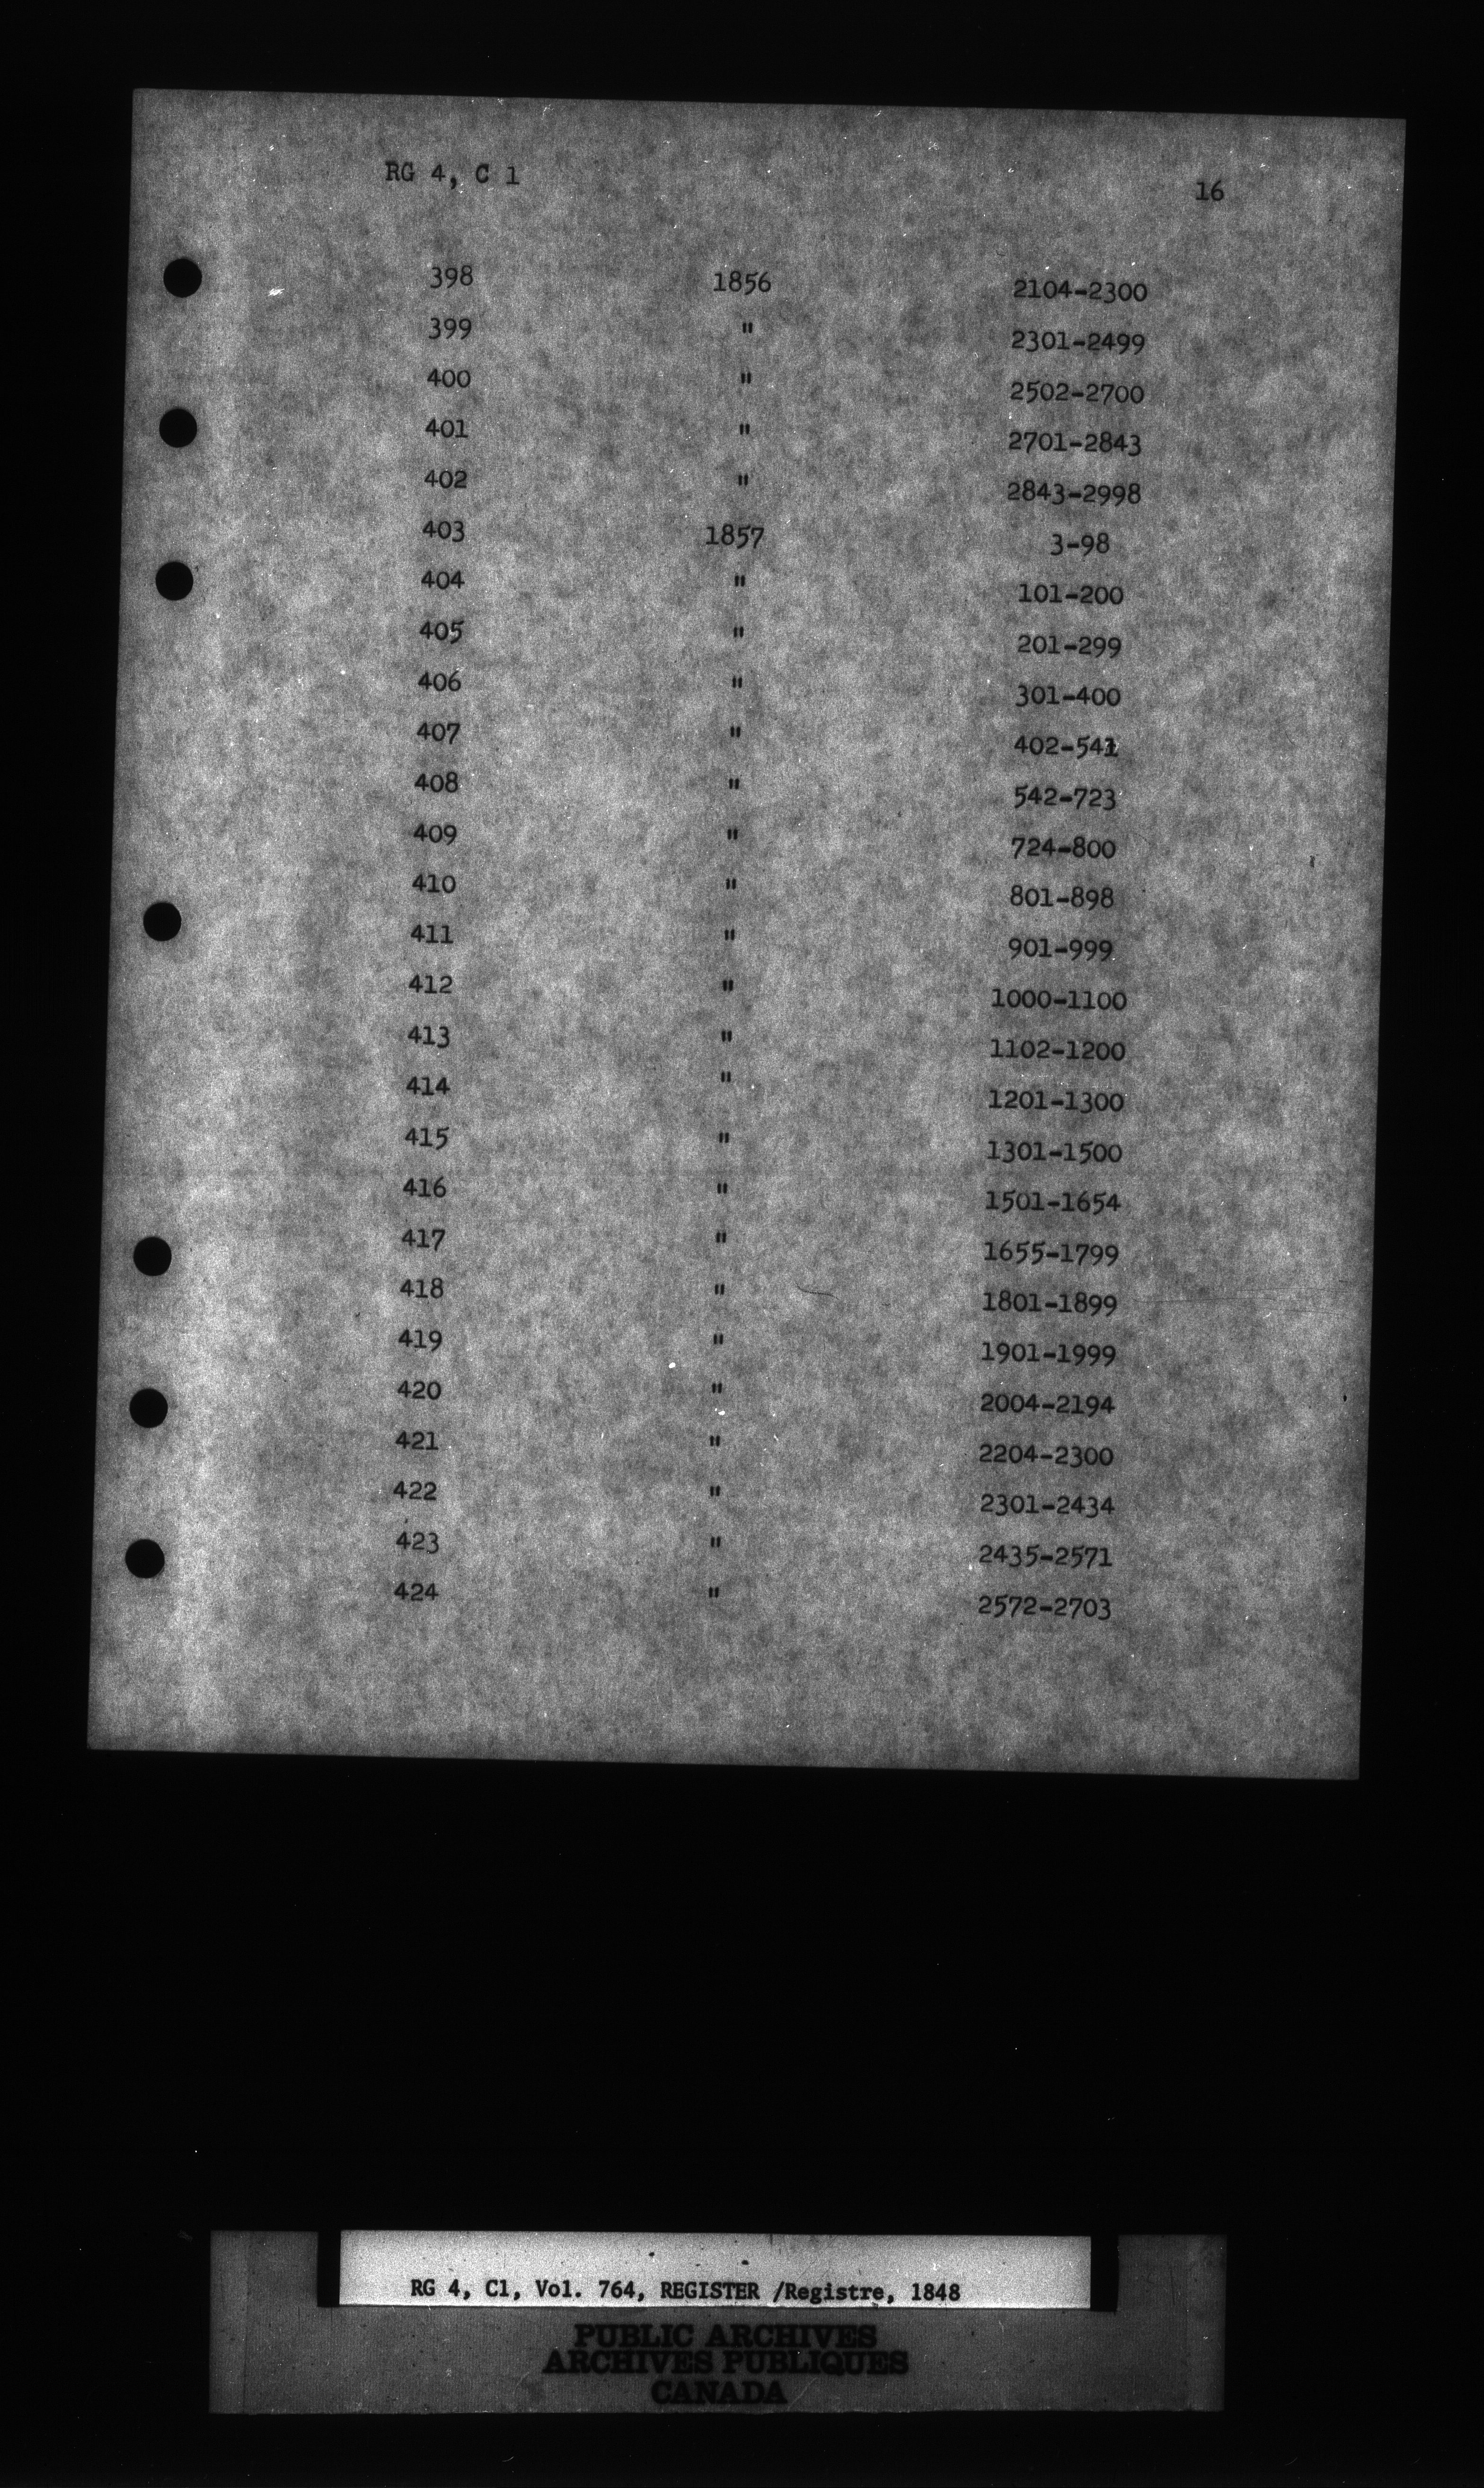 RG 4, C 1 16
398 1856 2104-2300
399 " 2301-2499
400 " 2502-2700
401 " 2701-2843
402 " 2843-2998
403 1857 3-98
404 " 101-200
405 " 201-299
406 " 301-400
407 " 402-541
408 " 542-723
409 " 724-800
410 " 801-898
411 " 901-999
412 " 1000-1100
413 " 1102-1200
414 " 1201-1300
415 " 1301-1500
416 " 1501-1654
417 " 1655-1799
418 " 1801-1899
419 " 1901-1999
420 " 2004-2194
421 " 2204-2300
422 " 2301-2434
423 " 2435-2571
424 " 2572-2703
RG 4, C1, Vol. 764, REGISTER /Registre, 1848
PUBLIC ARCHIVES
ARCHIVES PUBLIQUES
CANADA